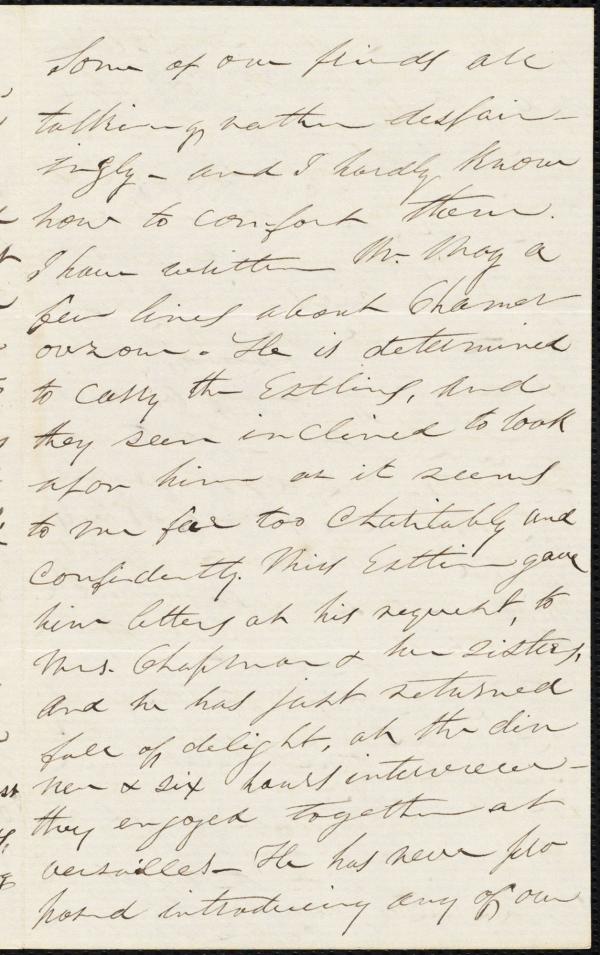 Some of our friends are
talking rather despair-
ingly - and I hardly know
how to comfort them.
I have written Mr. May a
few lines about Chamer
ovzow. He is determined
to carry the Estlins, and
they seem inclined to look
upon him as it seems
to me far too charitably and
confidently. Miss Estlin gave
him letters at his request, to
Mrs. Chapman & her sisters,
and he has just returned
full of delight, at the din
ner & six hours interview -
they enjoyed together at
Versailles - He has never pro
posed introducing any of our